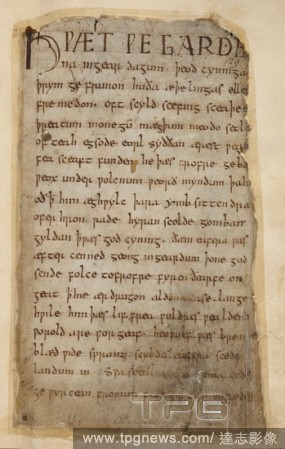 HǷÆT ǷE GARDE
na ingear dagum. þeod cyninga
þrym ge frunon huða æþelingas elle
fremedon. oft scyld scefing sceaþe
þreatum monegū mægþum meodo setla
of teah egsode eorl syððan ærest ƿear
fea sceaft funden he þæs frofre geba
ƿeox under ƿolcnum ƿeorð myndum þah
oð þ him æghƿylc þara ymb sittendra
ofer hron rade hyran scolde gomban
gyldan þ ƿæs god cyning. ðæm eafera ƿæs
æfter cenned geong ingeardum þone god
sende folce tofrofre fyren ðearfe on
geat þ hie ær drugon aldor ase. lange
hƿile him þæs liffrea ƿuldres ƿealdend
ƿorold are forgeaf. beoƿulf ƿæs breme
blæd ƿide sprang scyldes eafera scede
landum in. Sƿa sceal uma gode
ge ƿyrcean fromum
TPG
www.tpgnews.com/達志影像